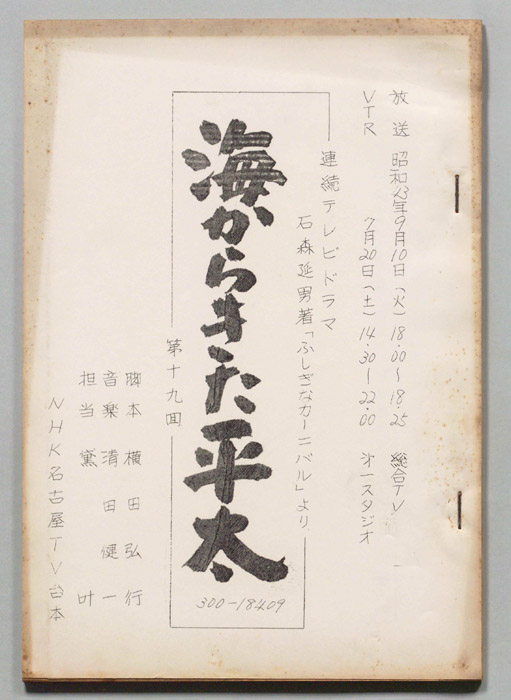 放送 昭和43年9月10日(火) 18.00〜18.25 総合TV
VTR 7月20日(土) 14.30〜22.00 第一スタジオ
連続テレビドラマ
石森延男著「ふしぎなカーニバル」より
海からきた平太
300-18409
第十九回
脚本 横田弘行
音楽 清田健一
担当 黛叶
NHK名古屋TV台本